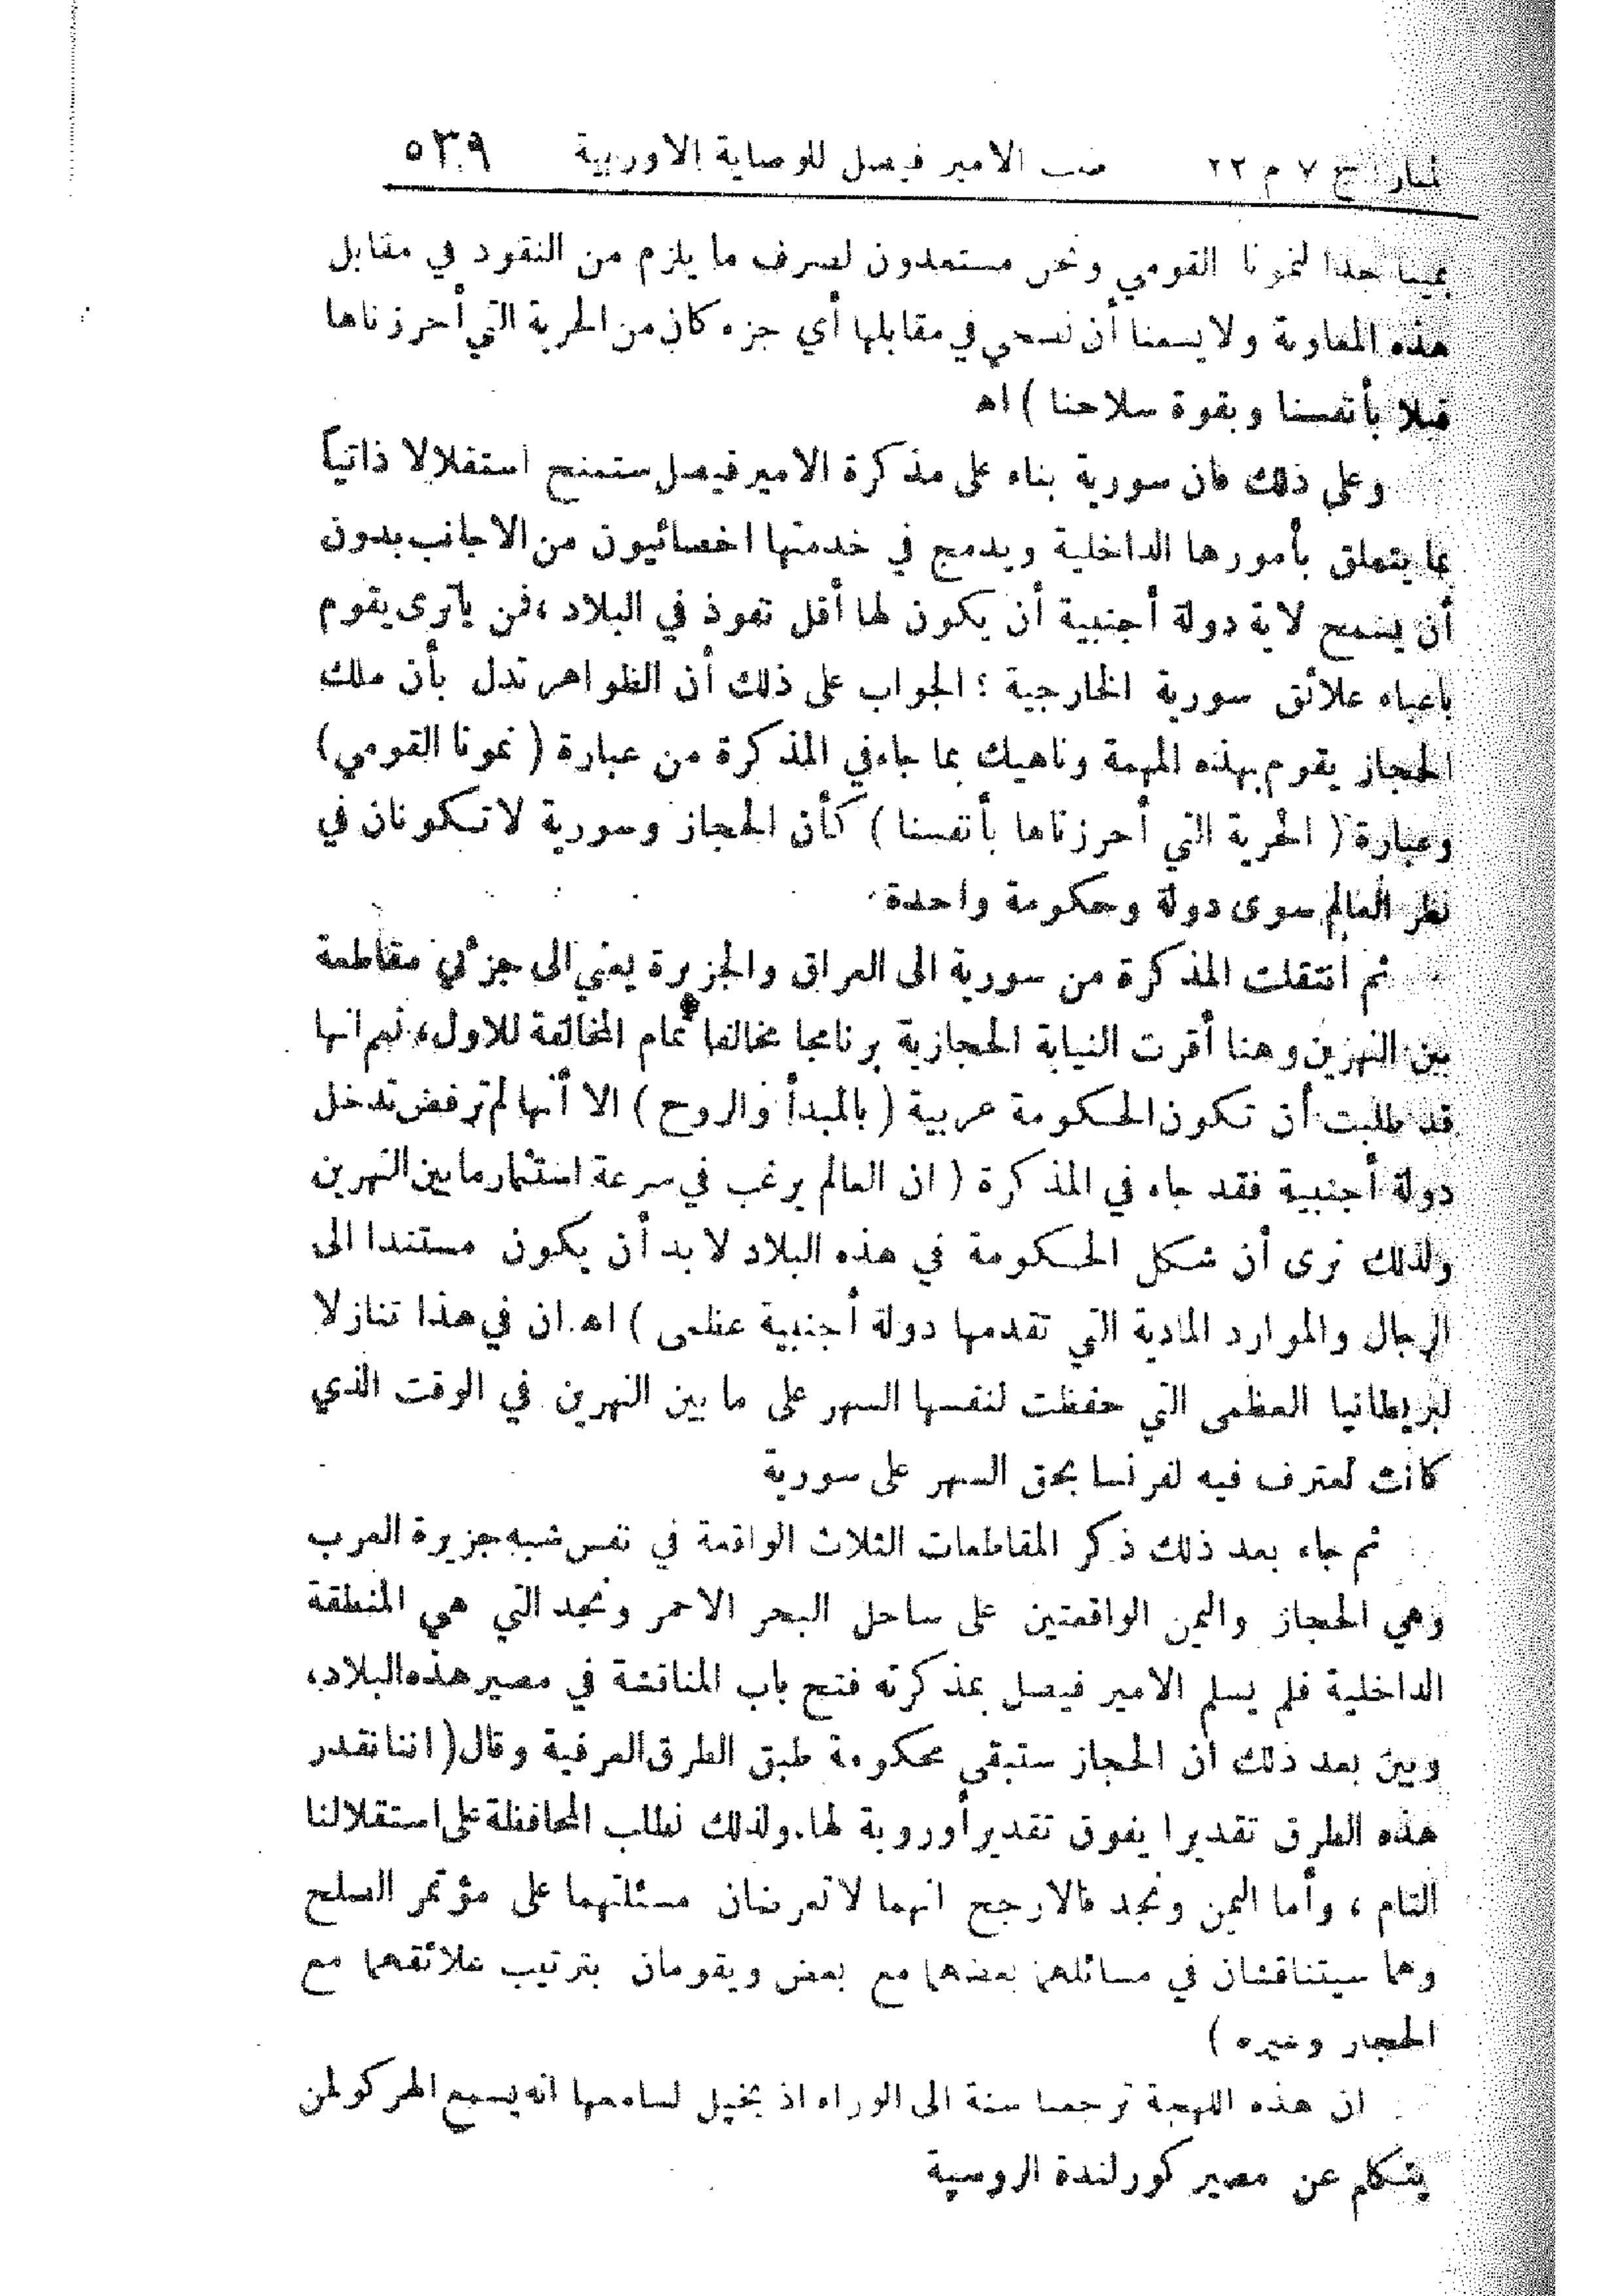 المنار: ج ٧ م ٢٢ الامير فيصل للوصاية الاوربية ٥٣٩
ثمينا جدا لنمونا القومي ونحن مستعدون لصرف ما يلزم من النقود في مقابل
هذه المعاونة ولا يسعنا أن نضحي في مقابلها أي جزء كان من الحرية التي أحرزناها
قبلا بأنفسنا وبقوة سلاحنا ) اه
وعلى ذلك فان سورية بناء على مذكرة الامير فيصل ستمنح استقلالا ذاتياً
بما يتعلق بأمورها الداخلية ويدمج في خدمتها اخصائيون من الاجانب بدون
أن يسمح لاية دولة أجنبية أن يكون لها أقل نفوذ في البلاد ، فمن ياترى يقوم
باعباء علائق سورية الخارجية ؟ الجواب على ذلك أن الظواهر تدل بأن ملك
الحجاز يقوم بهذه المهمة وناهيك بما جاء في المذكرة من عبارة ( نمونا القومي )
وعبارة ( الحرية التي أحرزناها بأنفسنا ) كأن الحجاز وسورية لا تكونان في
نظر العالم سوى دولة وحكومة واحدة
ثم انتقلت المذكرة من سورية الى العراق والجزيرة يعني الى جزئي مقاطعة
بين النهرين وهنا أقرت النيابة الحجازية برنامجا مخالفا تمام المخالفة للاول ، نعم انها
قد طلبت أن تكون الحكومة عربية ( بالمبدأ والروح ) الا أنها لم ترفض تدخل
دولة أجنبية فقد جاء في المذكرة ( ان العالم يرغب في سرعة استثمار ما بين النهرين
ولذلك نرى أن شكل الحكومة في هذه البلاد لا بد أن يكون مستندا الى
الرجال والموارد المادية التي تقدمها دولة أجنبية عظمى ) اه. ان في هذا تنازلا
لبريطانيا العظمى التي حفظت لنفسها السهر على ما بين النهرين في الوقت الذي
كانت تعترف فيه لفرنسا بحق السهر على سورية
ثم جاء بعد ذلك ذكر المقاطعات الثلاث الواقعة في نفس شبه جزيرة العرب
وهي الحجاز واليمن الواقعتين على ساحل البحر الاحمر ونجد التي هي المنطقة
الداخلية فلم يسلم الامير فيصل بمذكرته فتح باب المناقشة في مصير هذه البلاد ،
وبين بعد ذلك ان الحجاز ستبقى محكومة طبق الطرق العرفية وقال ( اننا نقدر
هذه الطرق تقديرا يفوق تقدير أوروبة لها. ولذلك نطلب المحافظة على استقلالنا
التام ، وأما اليمن ونجد فالارجح انهما لا تعرضان مسئلتهما على مؤتمر الصلح
وهما سيتناقشان في مسائلهما بعضهما مع بعض ويقومان بترتيب علائقهما مع
الحجاز وغيره )
ان هذه اللهجة ترجعنا سنة الى الوراء اذ يخيل لسامعها انه يسمع الهركولمن
يتكلم عن مصير كورلندة الروسية